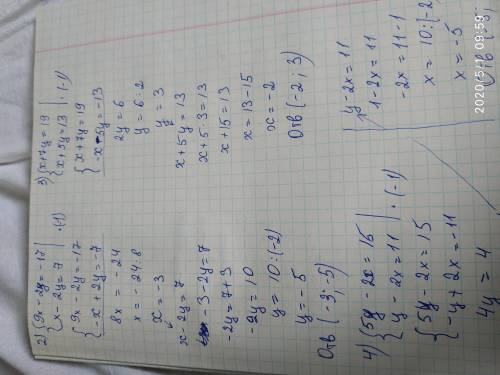 2) {9x - 2y = -17
{x - 2y = 7 | · (-1)
{9x - 2y = -17
{-x + 2y = -7
8x = -24
x = -24:8
x = -3
x - 2y = 7
-3 - 2y = 7
-2y = 7+3
-2y = 10
y = 10:(-2)
y = -5
Отв (-3; -5)
3) {x + 7y = 19
{x + 5y = 13 | · (-1)
{x + 7y = 19
{-x - 5y = -13
2y = 6
y = 6:2
y = 3
x + 5y = 13
x + 5·3 = 13
x + 15 = 13
x = 13-15
x = -2
Отв (-2; 3)
4) {5y - 2x = 15
{y - 2x = 11 | · (-1)
{5y - 2x = 15
{-y + 2x = -11
4y = 4
y - 2x = 11
1 - 2x = 11
-2x = 11-1
x = 10:(-2
x = -5
Отв
2020/5/11 09:59